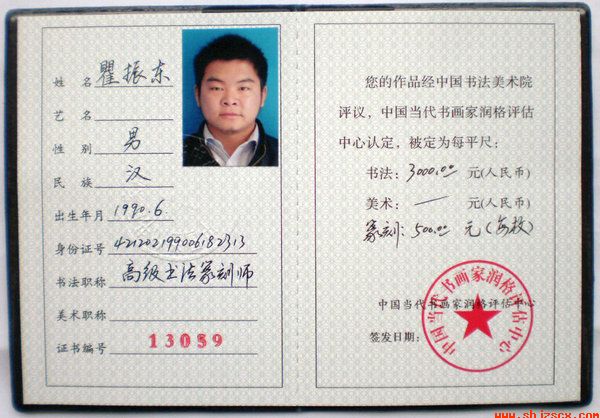 姓 名 瞿振东
艺 名
性 别 男
民 族 汉
出生年月 1990.6.
身份证号 421202199006182313
书法职称 高级书法篆刻师
美术职称
证书编号 13059
您的作品经中国书法美术院
评议，中国当代书画家润格评估
中心认定，被定为每平尺：
书法：3000.00 元(人民币)
美术：— 元(人民币)
篆刻：500.00 元(每枚)
中国当代书画家润格评估中心
签发日期：
中国当代书画家润格评估中心
www.shjzscx.com